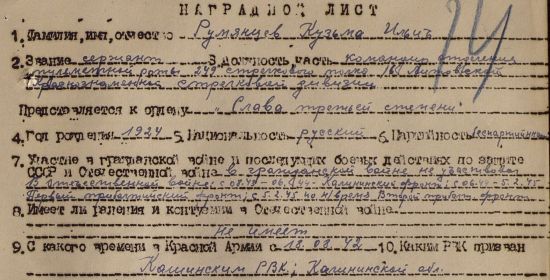 НАГРАДНОЙ ЛИСТ
1. Фамилия, имя, отчество Румянцев Кузьма Ильич
2. Звание сержант 3. Должность, часть командир отделения
пулеметной роты 249 стрелкового полка 16 Литовской
Краснознаменной стрелковой дивизии
Представляется к ордену "Слава третьей степени"
4. Год рождения 1924 5. Национальность русский 6. Партийность беспартийный
7. Участие в гражданской войне и последующих боевых действиях по защите
СССР и Отечественной войне в гражданской войне не участвовал
В отечественной войне: с Калининский фронт; с 5.2.45
Первый прибалтийский фронт; с 5.2.45 по н/время Второй прибалт. фронт
8. Имеет ли ранения и контузии в Отечественной войне
не имеет
9. С какого времени в Красной Армии с 18.08.42 10. Каким РВК призван
Кашинским РВК, Калининской обл.